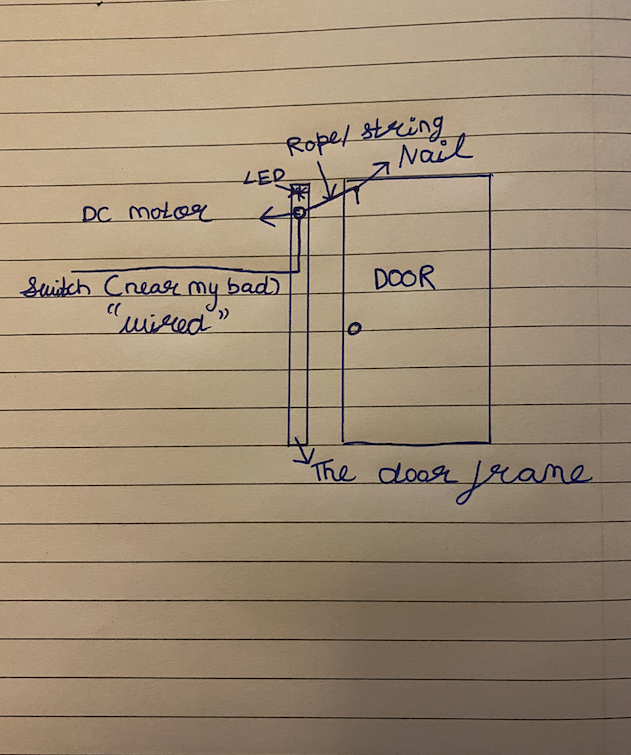 Rope/ string
Nail
LED
DC motor
Switch (near my bad)
"wired"
DOOR
The door frane